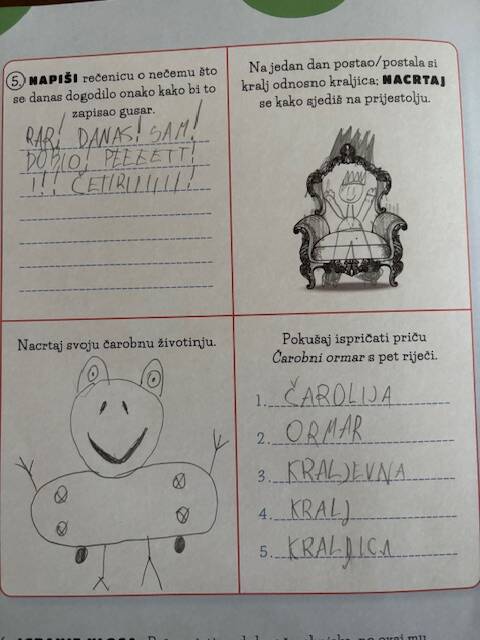 5. NAPIŠI rečenicu o nečemu što
se danas dogodilo onako kako bi to
zapisao gusar.
RAR! DANAS! SAM!
DOBIO! PEEEETT!
I!!! ČETIRIIIIII!
Na jedan dan postao/postala si
kralj odnosno kraljica; NACRTAJ
se kako sjediš na prijestolju.
Nacrtaj svoju čarobnu životinju.
Pokušaj ispričati priču
Čarobni ormar s pet riječi.
1. ČAROLIJA
2. ORMAR
3. KRALJEVNA
4. KRALJ
5. KRALJICA